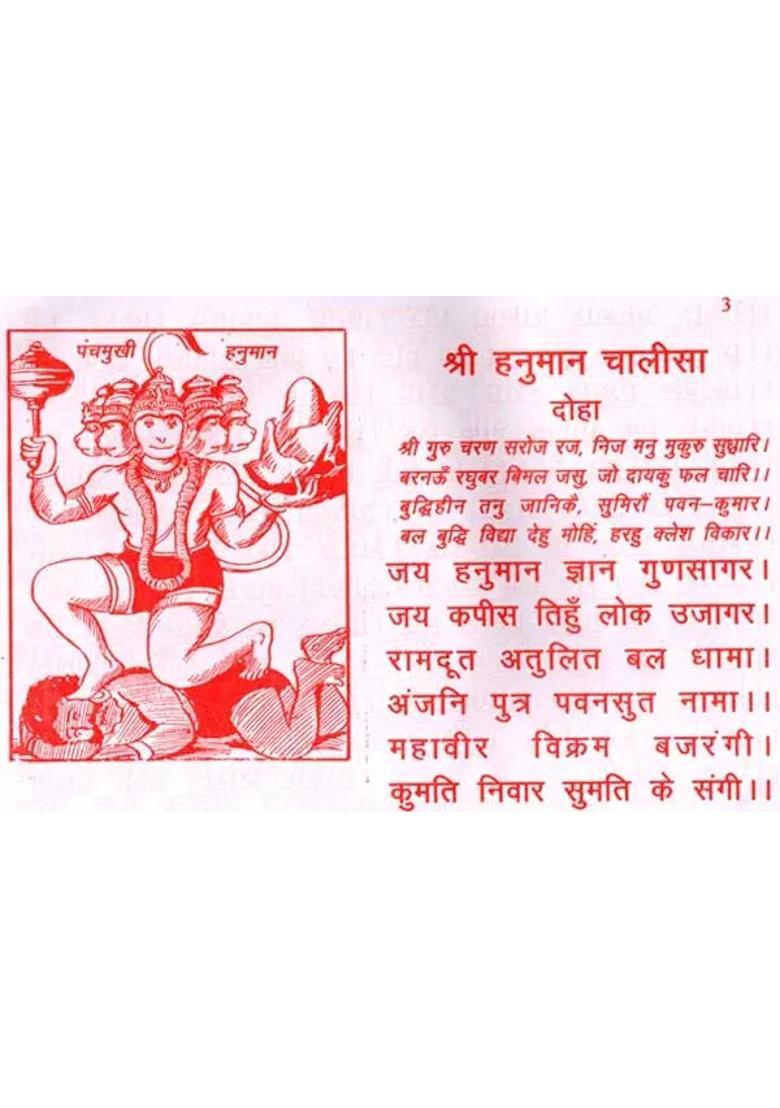 3
पंचमुखी हनुमान
श्री हनुमान चालीसा
दोहा
श्री गुरु चरण सरोज रज, निज मनु मुकुरु सुधारि।
बरनऊँ रघुबर बिमल जसु, जो दायकु फल चारि।।
बुद्धिहीन तनु जानिकै, सुमिरौं पवन-कुमार।
बल बुद्धि विद्या देहु मोहिं, हरहु क्लेश विकार।।
जय हनुमान ज्ञान गुणसागर।
जय कपीस तिहुँ लोक उजागर।
रामदूत अतुलित बल धामा।
अंजनि पुत्र पवनसुत नामा।।
महावीर विक्रम बजरंगी।
कुमति निवार सुमति के संगी।।